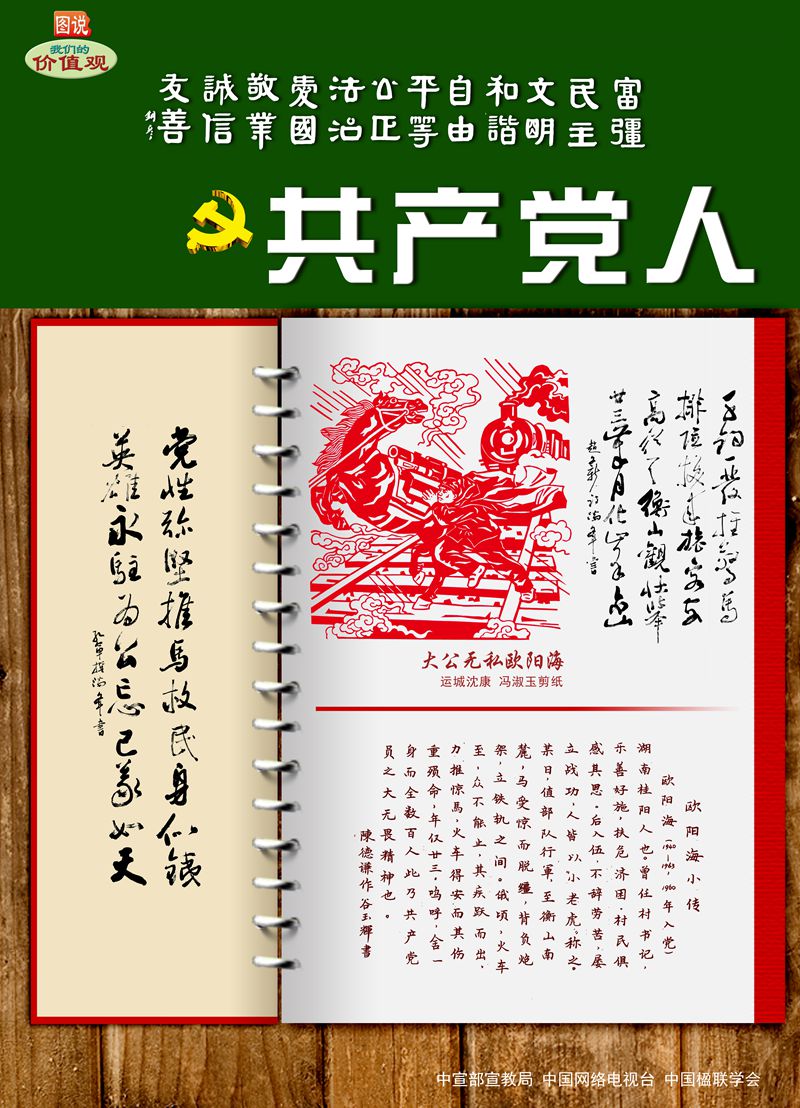 图说
我们的
价值观
富彊
民主
文明
和諧
自由
平等
公正
法治
愛國
敬業
誠信
友善
共产党人
党性弥坚推馬救民身似鉄
英雄永駐为公忘己義如天
推驚馬
衡山觀壮举
大公无私欧阳海
运城沈康 冯淑玉剪纸
欧阳海小传
欧阳海（1940—1963，1960年入党）
湖南桂阳人也。曾任村书记，
示善好施，扶危济困，村民俱
感其恩。后入伍，不辞劳苦，屡
立战功，人皆以小老虎称之。
某日，值部队行軍，至衡山南
麓，马受惊而脱疆，背负炮
架，立铁轨之间。俄顷，火车
至，众不能止，其疾跃而出，
力推惊馬，火车得安而其伤
重殒命，年仅廿三。呜呼，舍一
身而全数百人此乃共产党
员之大无畏精神也。
陳德谦作谷玉輝書
中宣部宣教局 中国网络电视台 中国楹联学会